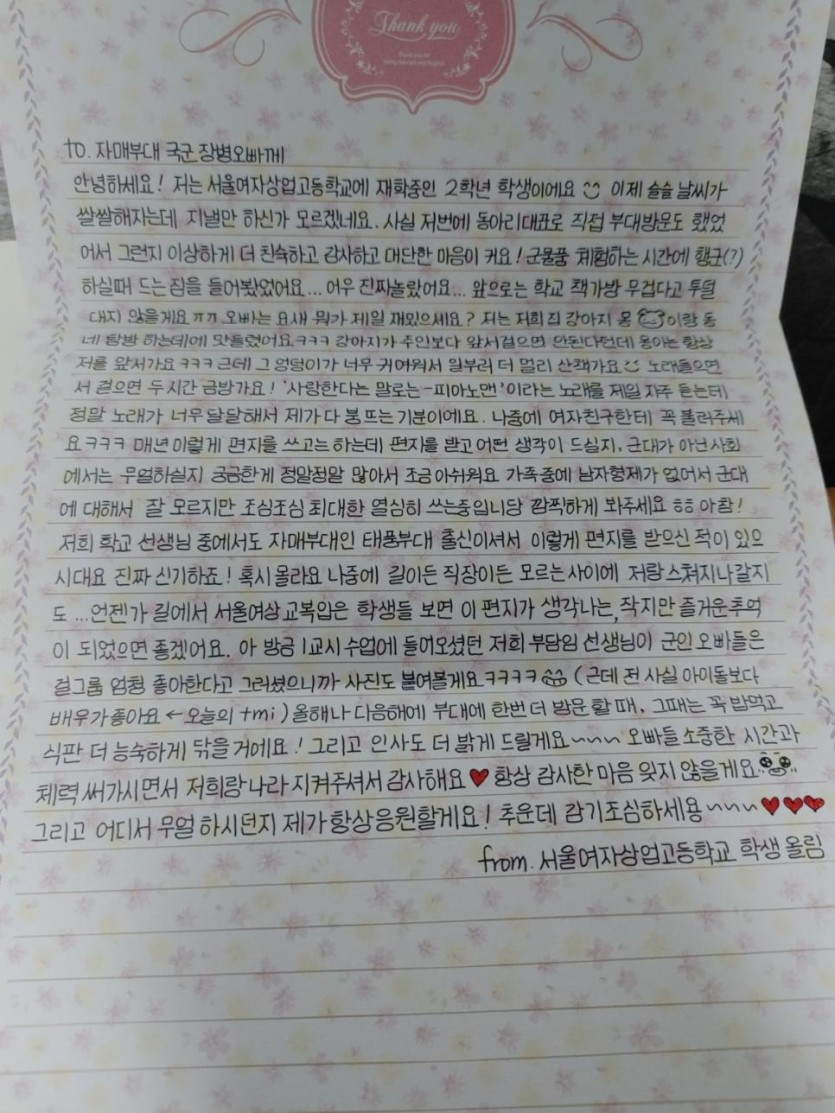 Thank you
to. 자매부대 국군 장병오빠께
안녕하세요! 저는 서울여자상업고등학교에 재학중인 2학년 학생이에요 이제 슬슬 날씨가
쌀쌀해지는데 지낼만 하신가 모르겠네요. 사실 저번에 동아리대표로 직접 부대방문도 했었
어서 그런지 이상하게 더 친숙하고 감사하고 대단한 마음이 커요! 군물품 체험하는 시간에 행군(?)
하실때 드는 짐을 들어봤었어요... 어우 진짜놀랐어요... 앞으로는 학교 책가방 무겁다고 투덜
대지 않을게요ㅠㅠ 오빠는 요새 뭐가 제일 재밌으세요? 저는 저희집 강아지 몽이랑 동
네 탐방 하는데에 맛들렸어요ㅋㅋㅋ 강아지가 주인보다 앞서걸으면 안된다던데 몽이는 항상
저를 앞서가요ㅋㅋㅋ 근데 그 엉덩이가 너무 귀여워서 일부러 더 멀리 산책가요 노래들으면
서 걸으면 두시간 금방가요! '사랑한다는 말로는-피아노맨'이라는 노래를 제일 자주 듣는데
정말 노래가 너무 달달해서 제가 다 붕뜨는 기분이에요. 나중에 여자친구한테 꼭 불러주세
요ㅋㅋㅋ 매년 이렇게 편지를 쓰고는 하는데 편지를 받고 어떤 생각이 드실지, 군대가 아닌 사회
에서는 무얼하실지 궁금한게 정말정말 많아서 조금 아쉬워요 가족중에 남자형제가 없어서 군대
에 대해서 잘 모르지만 조심조심 최대한 열심히 쓰는중입니당 깜찍하게 봐주세요ㅎㅎ 아참!
저희 학교 선생님 중에서도 자매부대인 태풍부대 출신이셔서 이렇게 편지를 받으신 적이 있으
시대요 진짜 신기하죠! 혹시 몰라요 나중에 길이든 직장이든 모르는사이에 저랑 스쳐지나갈지
도... 언젠가 길에서 서울여상 교복입은 학생들 보면 이 편지가 생각나는, 작지만 즐거운 추억
이 되었으면 좋겠어요. 아 방금 1교시 수업에 들어오셨던 저희 부담임 선생님이 군인 오빠들은
걸그룹 엄청 좋아한다고 그러셨으니까 사진도 붙여볼게요ㅋㅋㅋㅋ (근데 전 사실 아이돌보다
배우가좋아요 ← 오늘의 tmi) 올해나 다음해에 부대에 한번 더 방문 할 때, 그때는 꼭 밥먹고
식판 더 능숙하게 닦을거에요! 그리고 인사도 더 밝게 드릴게요~~~ 오빠들 소중한 시간과
체력 써가시면서 저희랑 나라 지켜주셔서 감사해요♥ 항상 감사한 마음 잊지 않을게요
그리고 어디서 무얼 하시던지 제가 항상응원할게요! 추운데 감기조심하세용~~~♥♥♥
from. 서울여자상업고등학교 학생 올림